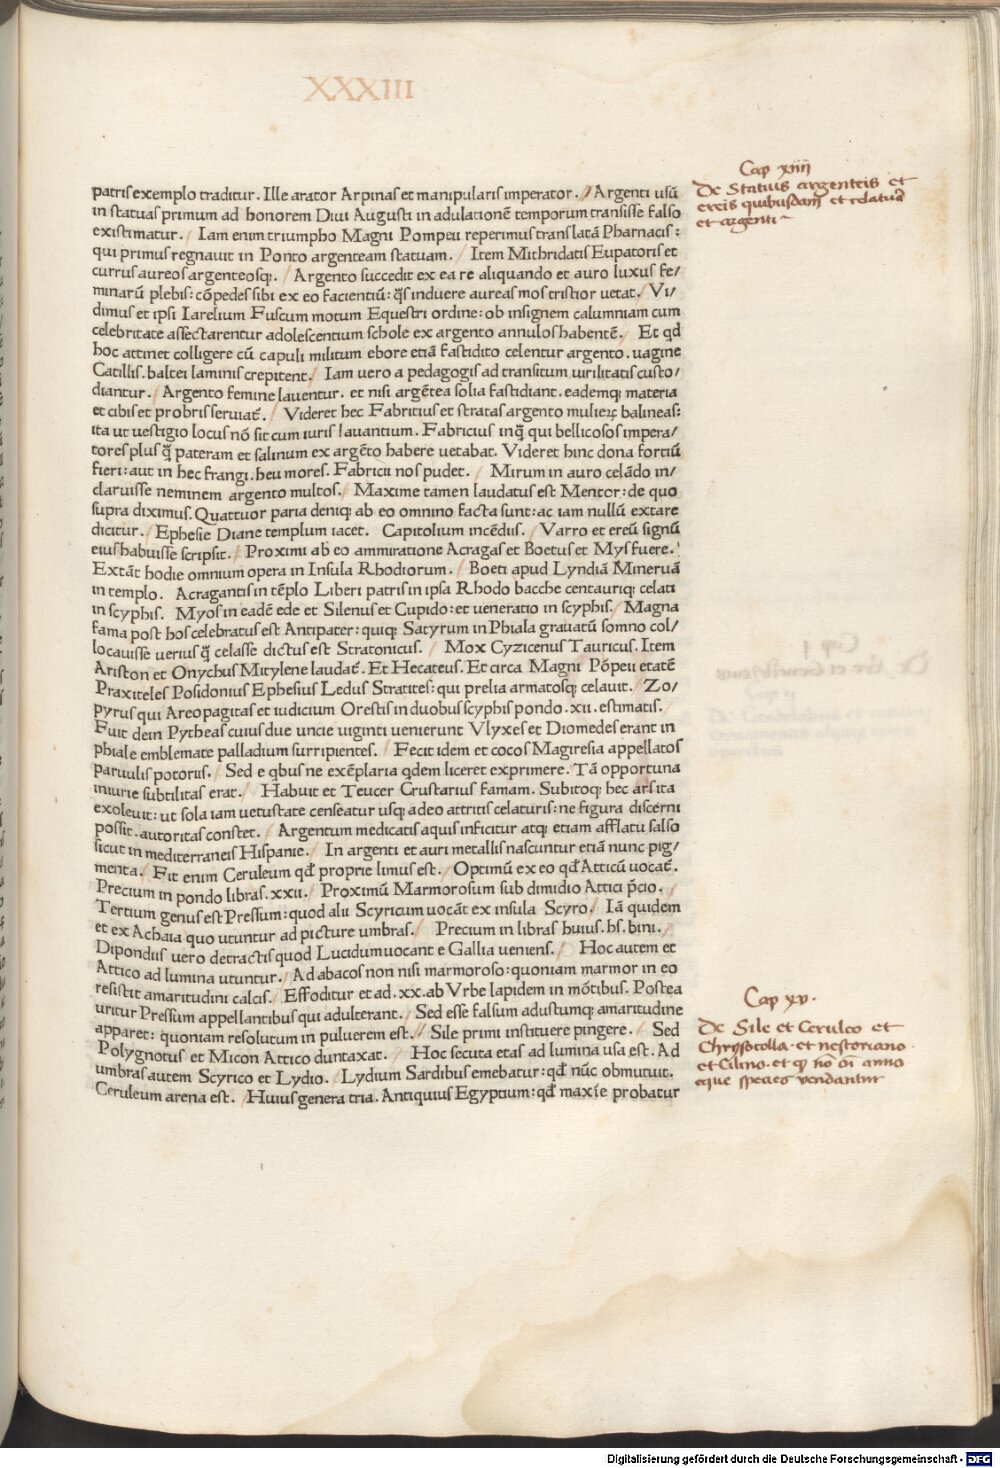 XXXIII
patris exemplo traditur. Ille arator Arpinas et manipularis imperator. // Argenti usū
in statuas primum ad honorem Diui Augusti in adulationē temporum transisse falso
existimatur. / Iam enim triumpho Magni Pompeii reperimus translatā Pharnacis:
qui primus regnauit in Ponto argenteam statuam. / Item Mithridatis Eupatoris et
currus aureos argenteosq;. / Argento succedit ex ea re aliquando et auro luxus fe/
minarū plebis: cōpedes sibi ex eo facientiū: q̄s induere aureas mos tristior uetat. / Vi/
dimus et ipsi Iarelium Fuscum motum Equestri ordine: ob insignem calumniam cum
celebritate assectarentur adolescentium schole ex argento annulos habentē. / Et qd
hoc attinet colligere cū capuli militum ebore etiā fastidito celentur argento. uagine
Catillis. baltei laminis crepitent. / Iam uero a pedagogis ad transitum uirilitatis custo/
diantur. / Argento femine lauentur. et nisi argētea solia fastidiant. eademq; materia
et cibis et probris seruiat̄. / Videret hec Fabritius et stratas argento mulieꝝ balineas:
ita ut uestigio locus nō sit cum iuris lauantium. Fabricius inq̄ qui bellicosos impera/
tores plus q̄ pateram et salinum ex argēto habere uetabat. Videret hinc dona fortiū
fieri: aut in hec frangi. heu mores. Fabricii nos pudet. / Mirum in auro celādo in/
claruisse neminem argento multos. / Maxime tamen laudatus est Mentor: de quo
supra diximus. Quattuor paria deniq; ab eo omnino facta sunt: ac iam nullū extare
dicitur. / Ephesie Diane templum iacet. Capitolium incēdiis. / Varro et ereū signū
eius habuisse scripsit. / Proximi ab eo ammiratione Acragas et Boetus et Mys fuere.
Extāt hodie omnium opera in Insula Rhodiorum. / Boeti apud Lyndiā Mineruā
in templo. Acragantis in tēplo Liberi patris in ipsa Rhodo bacche centauriq; celati
in scyphis. Myos in eadē ede et Silenus et Cupido: et ueneratio in scyphis. / Magna
fama post hos celebratus est Antipater: quiq; Satyrum in Phiala grauatū somno col/
locauisse uerius q̄ celasse dictus est Stratonicus. / Mox Cyzicenus Tauricus. Item
Ariston et Onychus Mitylene laudat̄. Et Hecateus. Et circa Magni Pōpeii etatē
Praxiteles Posidonius Ephesius Ledus Stratites: qui prelia armatosq; celauit. / Zo/
pyrus qui Areopagitas et iudicium Orestis in duobus scyphis pondo .xii. estimatis. /
Fuit dein Pytheas cuius due uncie uiginti uenierunt Vlyxes et Diomedes erant in
phiale emblemate palladium surripientes. / Fecit idem et cocos Magiresia appellatos
paruulis potoriis. / Sed e qbus ne exēplaria qdem liceret exprimere. Tā opportuna
iniurie subtilitas erat. / Habuit et Teucer Crustarius famam. Subitoq; hec ars ita
exoleuit: ut sola iam uetustate censeatur usq; adeo attritis celaturis: ne figura discerni
possit. autoritas constet. / Argentum medicatis aquis inficitur atq; etiam afflatu salso
sicut in mediterraneis Hispanie. / In argenti et auri metallis nascuntur etiā nunc pig/
menta. / Fit enim Ceruleum qd̄ proprie limus est. / Optimū ex eo qd̄ Atticū uocat̄.
Precium in pondo libras .xxii. / Proximū Marmorosum sub dimidio Attici p̄cio. /
Tertium genus est Pressum: quod alii Scyricum uocāt ex insula Scyro. / Iā quidem
et ex Achaia quo utuntur ad picture umbras. / Precium in libras huius .hs. bini. /
Dipondiis uero detractis quod Lucidum uocant e Gallia ueniens. / Hoc autem et
Attico ad lumina utuntur. / Ad abacos non nisi marmoroso: quoniam marmor in eo
resistit amaritudini calcis. / Effoditur et ad .xx. ab Vrbe lapidem in mōtibus. Postea
uritur Pressum appellantibus qui adulterant. / Sed esse falsum adustumq; amaritudine
apparet: quoniam resolutum in puluerem est. // Sile primi instituere pingere. / Sed
Polygnotus et Micon Attico duntaxat. / Hoc secuta etas ad lumina usa est. Ad
umbras autem Scyrico et Lydio. / Lydium Sardibus emebatur: qd̄ nūc obmutuit.
Ceruleum arena est. / Huius genera tria. Antiquius Egyptium: qd̄ maxīe probatur
Cap xiiii
De Statuis argenteis et
ereis quibusdam et celatura
et argenti
Cap xv.
De Sile et Ceruleo et
Chrysocolla. et nestoriano.
et Cilino. et q nō oī anno
eque species vendantur
Digitalisierung gefördert durch die Deutsche Forschungsgemeinschaft - DFG